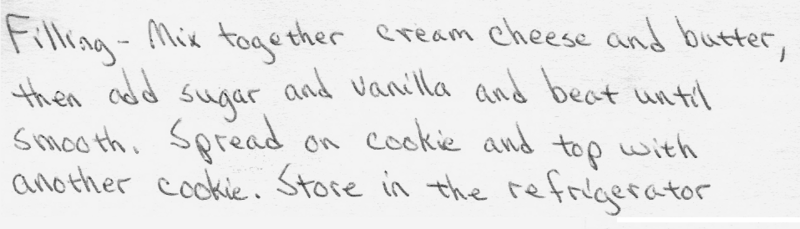 Filling - Mix together cream cheese and butter,
then add sugar and vanilla and beat until
smooth. Spread on cookie and top with
another cookie. Store in the refrigerator